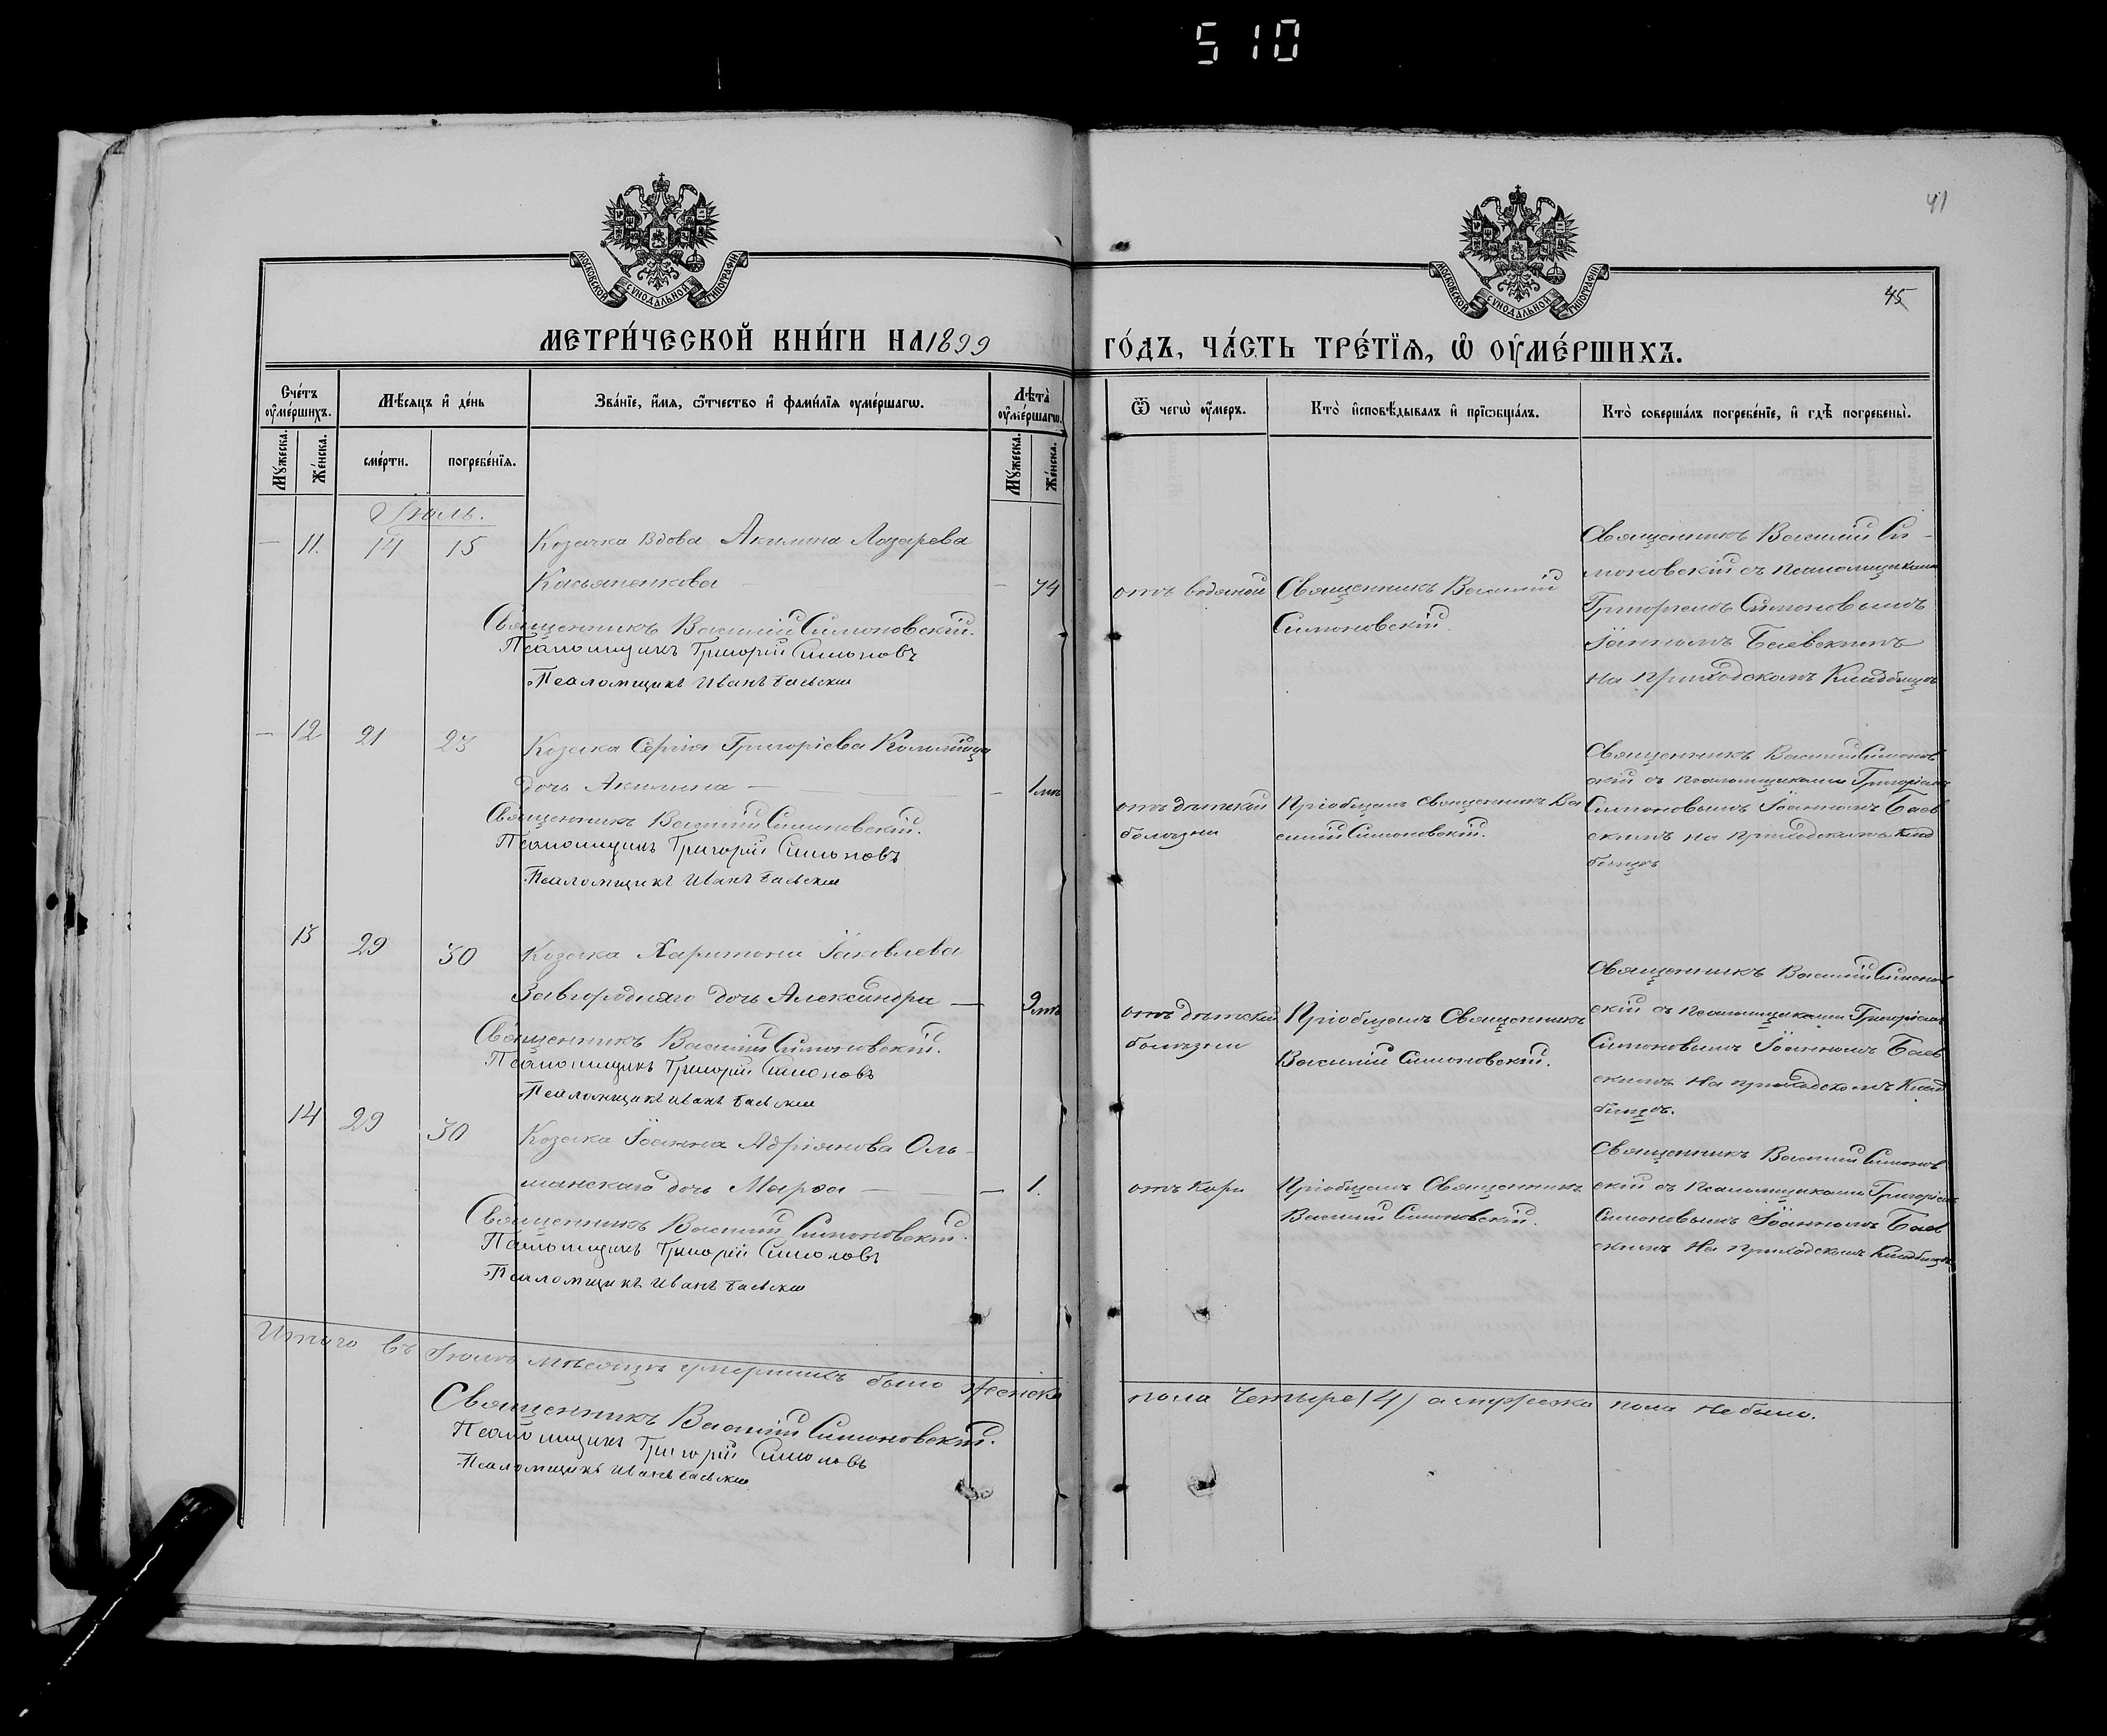 510
41
МОСКОВСКОЙ СУНОДАЛЬНОЙ ТИПОГРАФІИ
МОСКОВСКОЙ СУНОДАЛЬНОЙ ТИПОГРАФІИ
45
МЕТРИ́ЧЕСКОЙ КНИ́ГИ НА 1899
ГО́ДЪ, ЧА́СТЬ ТРЕ́ТЇѦ, Ѡ҆ ОУ҆МЕ́РШИХЪ.
Сче́тъ оу҆ме́ршихъ.
Мѣ́сѧцъ и҆ де́нь
Зва́нїе, и҆́мѧ, ѻ҆́тчество и҆ фами́лїѧ оу҆ме́ршагѡ.
Лѣ́та оу҆ме́ршагѡ.
Ѿ чегѡ̀ оу҆́меръ.
Кто̀ и҆сповѣ́дывалъ и҆ прїѡбща́лъ.
Кто̀ соверша́лъ погребе́нїе, и҆ гдѣ̀ погребены̀.
Мꙋ́жеска.
Же́нска.
сме́рти.
погребе́нїѧ.
Мꙋ́жеска.
Же́нска.
Іюль.
— 11. 14 15 Козачка вдова Акилина Лазарева
Касьяненкова — 74
Священникъ Василій Симоновскій.
Псаломщикъ Григорій Симоновъ
Псаломщикъ Иванъ Баевскій
отъ водяной
Священникъ Василій
Симоновскій.
Священникъ Василій Си-
моновскій съ псаломщиками
Григоріемъ Симоновымъ
Іоанномъ Баевскимъ
на приходскомъ кладбищѣ
— 12 21 23 Козака Сергія Григоріева Коломійца
дочь Акилина — 1 мѣ
Священникъ Василій Симоновскій.
Псаломщикъ Григорій Симоновъ
Псаломщикъ Иванъ Баевскій
отъ дѣтской
болѣзни
Пріобщалъ священникъ Ва
силій Симоновскій.
Священникъ Василій Симонов
скій съ псаломщиками Григоріемъ
Симоновымъ Іоанномъ Баев
скимъ на приходскомъ клад
бищѣ
13 29 30 Козака Харитона Іаковлева
Завгородняго дочь Александра — 9 мѣ
Священникъ Василій Симоновскій.
Псаломщикъ Григорій Симоновъ
Псаломщикъ Иванъ Баевскій
отъ дѣтской
болѣзни
Пріобщалъ Священникъ
Василій Симоновскій.
Священникъ Василій Симонов
скій съ псаломщиками Григоріемъ
Симоновымъ Іоанномъ Баев
скимъ на приходскомъ клад
бищѣ.
14 29 30 Козака Іоанна Адріянова Оль
шанскаго дочь Марѳа — 1.
Священникъ Василій Симоновскій.
Псаломщикъ Григорій Симоновъ
Псаломщикъ Иванъ Баевскій
отъ кори
Пріобщалъ Священникъ
Василій Симоновскій.
Священникъ Василій Симонов
скій съ псаломщиками Григоріемъ
Симоновымъ Іоанномъ Баев
скимъ на приходскомъ кладбищѣ.
Итого въ Іюлѣ мѣсяцѣ умершихъ было женска
пола четыре (4) а мужеска пола не было.
Священникъ Василій Симоновскій.
Псаломщикъ Григорій Симоновъ
Псаломщикъ Иванъ Баевскій